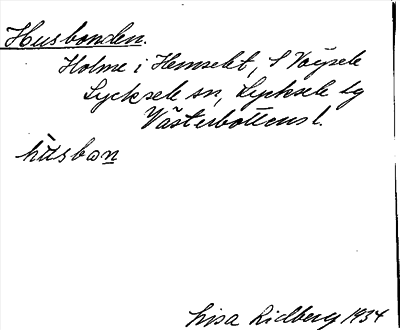 Husbonden.
Holme i Hemsekt, S Vojsele
Lycksele sn, Lycksele lg
Västerbottens l.
hùsbon
Lisa Lidberg 1934